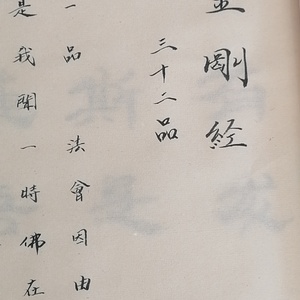 金剛経
三十二品
一品 法會因由
是我聞一時佛在